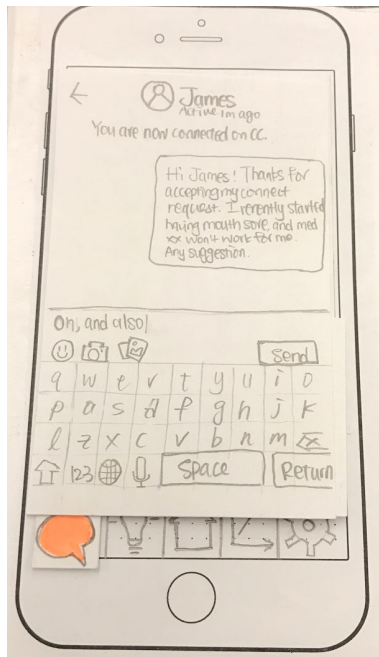 James
Active 1m ago
You are now connected on CC.
Hi James! Thanks for
accepting my connect
request. I recently started
having mouth sore, and med
xx won't work for me.
Any suggestion.
Oh, and also
Send
q w e r t y u i o
p a s d f g h j k
l z x c v b n m
123 Space Return